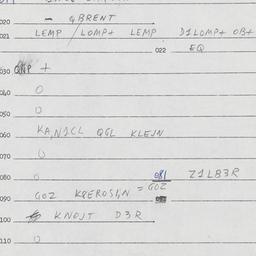 020 - GBRENT
021 LEMP / LOMP+ LEMP D1LOMP+ OB+
022 EQ
030 QNP +
040 O
050 O
060 KA,N1CL QGL KLEJN
070 O
080 O 081 Z1LB3R
090 GOZ KQEROSIN = GOZ
100 KNOJT D3R
110 O